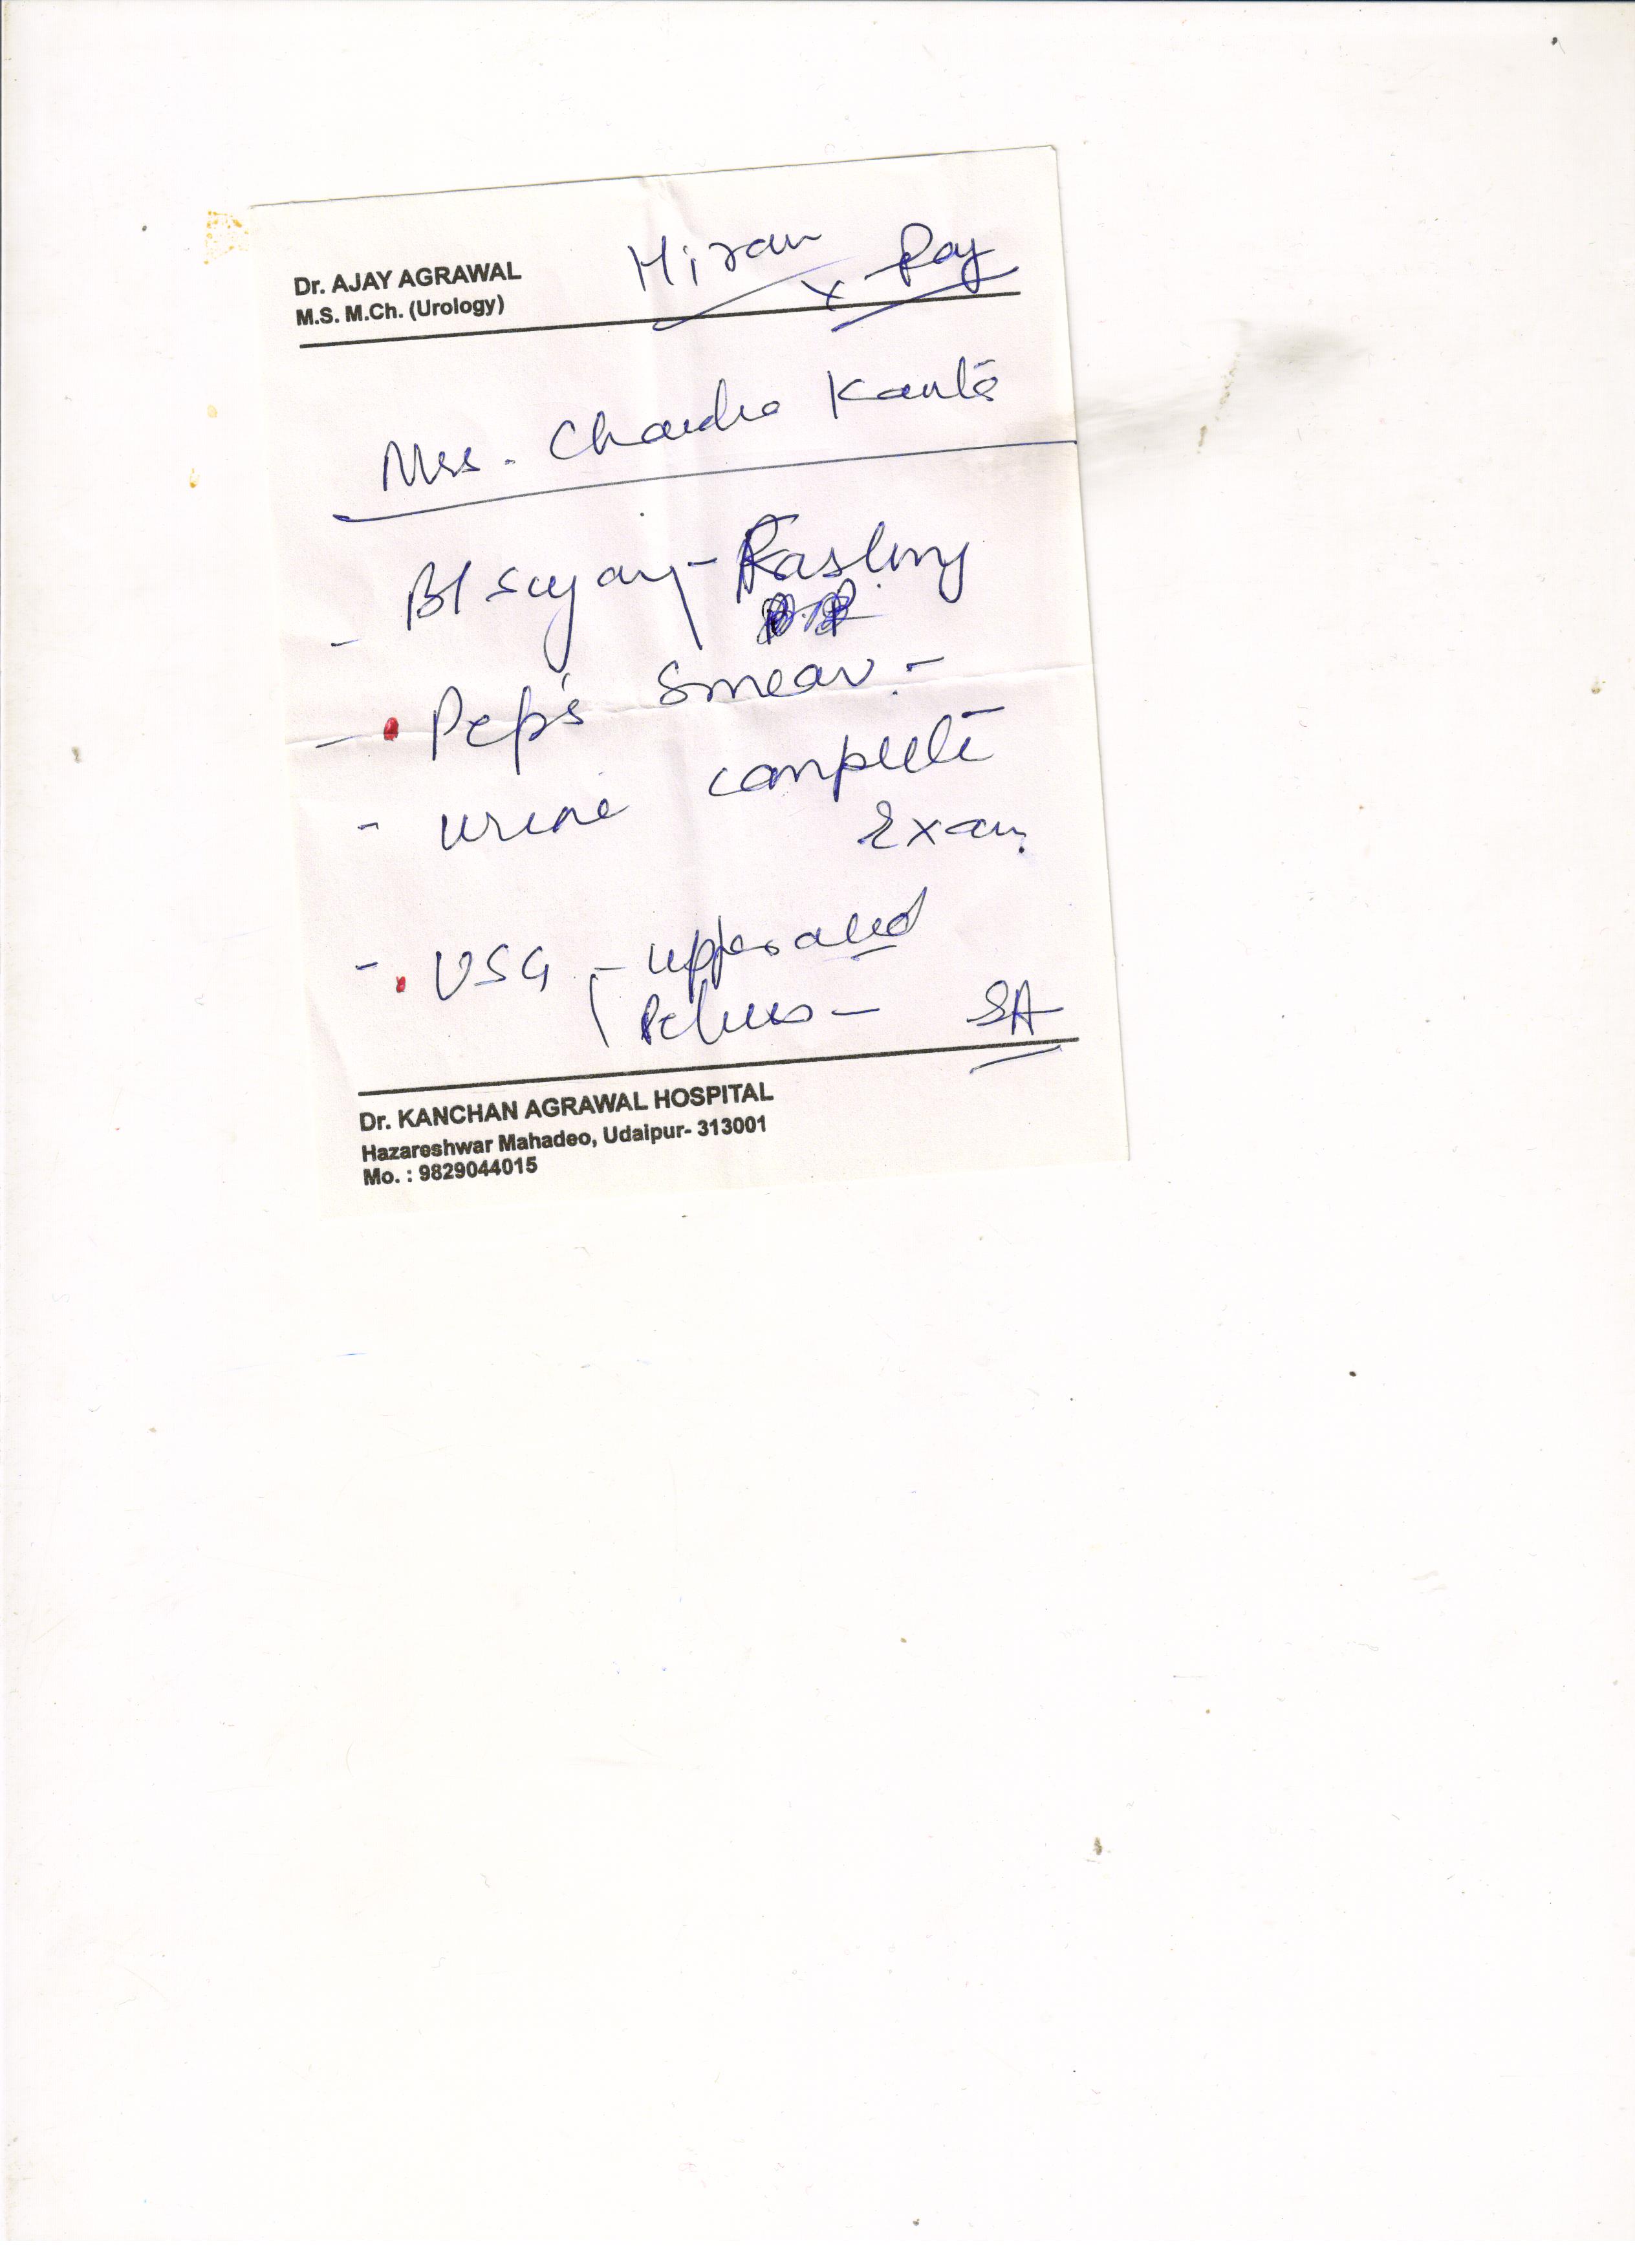 Dr. AJAY AGRAWAL
M.S. M.Ch. (Urology)
Hiran
x-Ray
Mrs. Chandra Kanta
- Bl sugar - Fasting
- Pep's Smear -
- urine complete
Exam.
- USG - upper and
Pelvis - SA
Dr. KANCHAN AGRAWAL HOSPITAL
Hazareshwar Mahadeo, Udaipur- 313001
Mo. : 9829044015